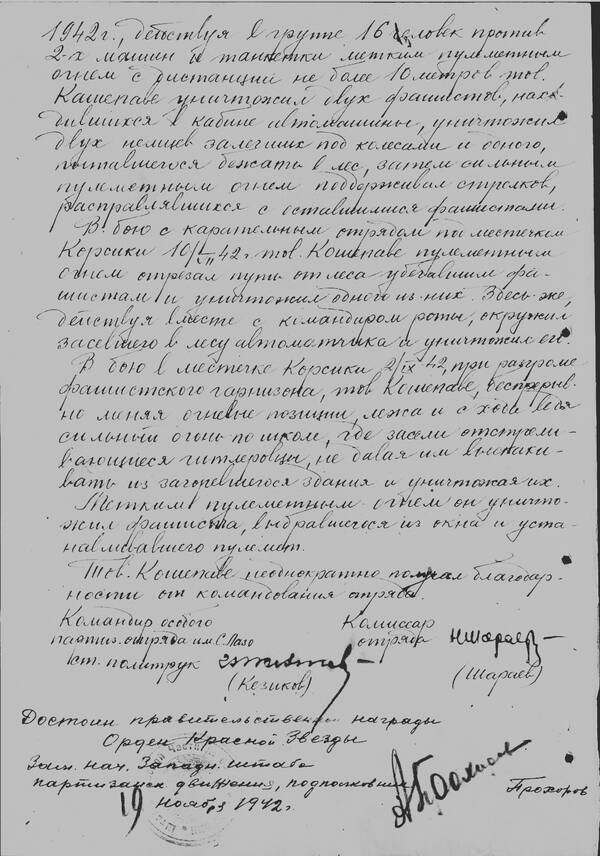 1942г., действуя в группе 16 человек против
2-х машин и танкетки метким пулеметным
огнем с дистанций не более 10 метров тов.
Кошепаве уничтожил двух фашистов, нахо-
дившихся в кабине автомашины, уничтожил
двух немцев залегших под колесами и одного,
пытавшегося бежать в лес, затем сильным
пулеметным огнем поддерживал стрелков,
расправлявшихся с оставшимися фашистами.
В бою с карательным отрядом по местечком
Корсики 10/VII 42 г. тов. Кошепаве пулеметным
огнем отрезал путь от леса убегавшим фа-
шистам и уничтожил одного из них. Здесь же,
действуя вместе с командиром роты, окружил
засевшего в лесу автоматчика и уничтожил его.
В бою в местечке Корсики 2/IX 42, при разгроме
фашистского гарнизона, тов Кошепаве, беспрерыв-
но меняя огневые позиции, лежа и с хода ведя
сильный огонь по школ, где засели отстрели-
вающиеся гитлеровцы, не давая им выскаки-
вать из загоревшегося здания и уничтожая их.
Метким пулеметным огнем он уничто-
жил фашиста, выбравшегося из окна и уста-
навливавшего пулемет.
Тов. Кошепаве неоднократно получал благодар-
ности от командования отряда.
Командир особого
партиз. отряда им С. Лазо
ст. политрук
(Кезиков)
Комиссар
отряда Н Шараев
(Шараев)
Достоин правительственной награды
Орден Красной Звезды
Зам. нач. Западн. штаба
партизанск движения, подполковник Прохоров
19 ноября 1942г.